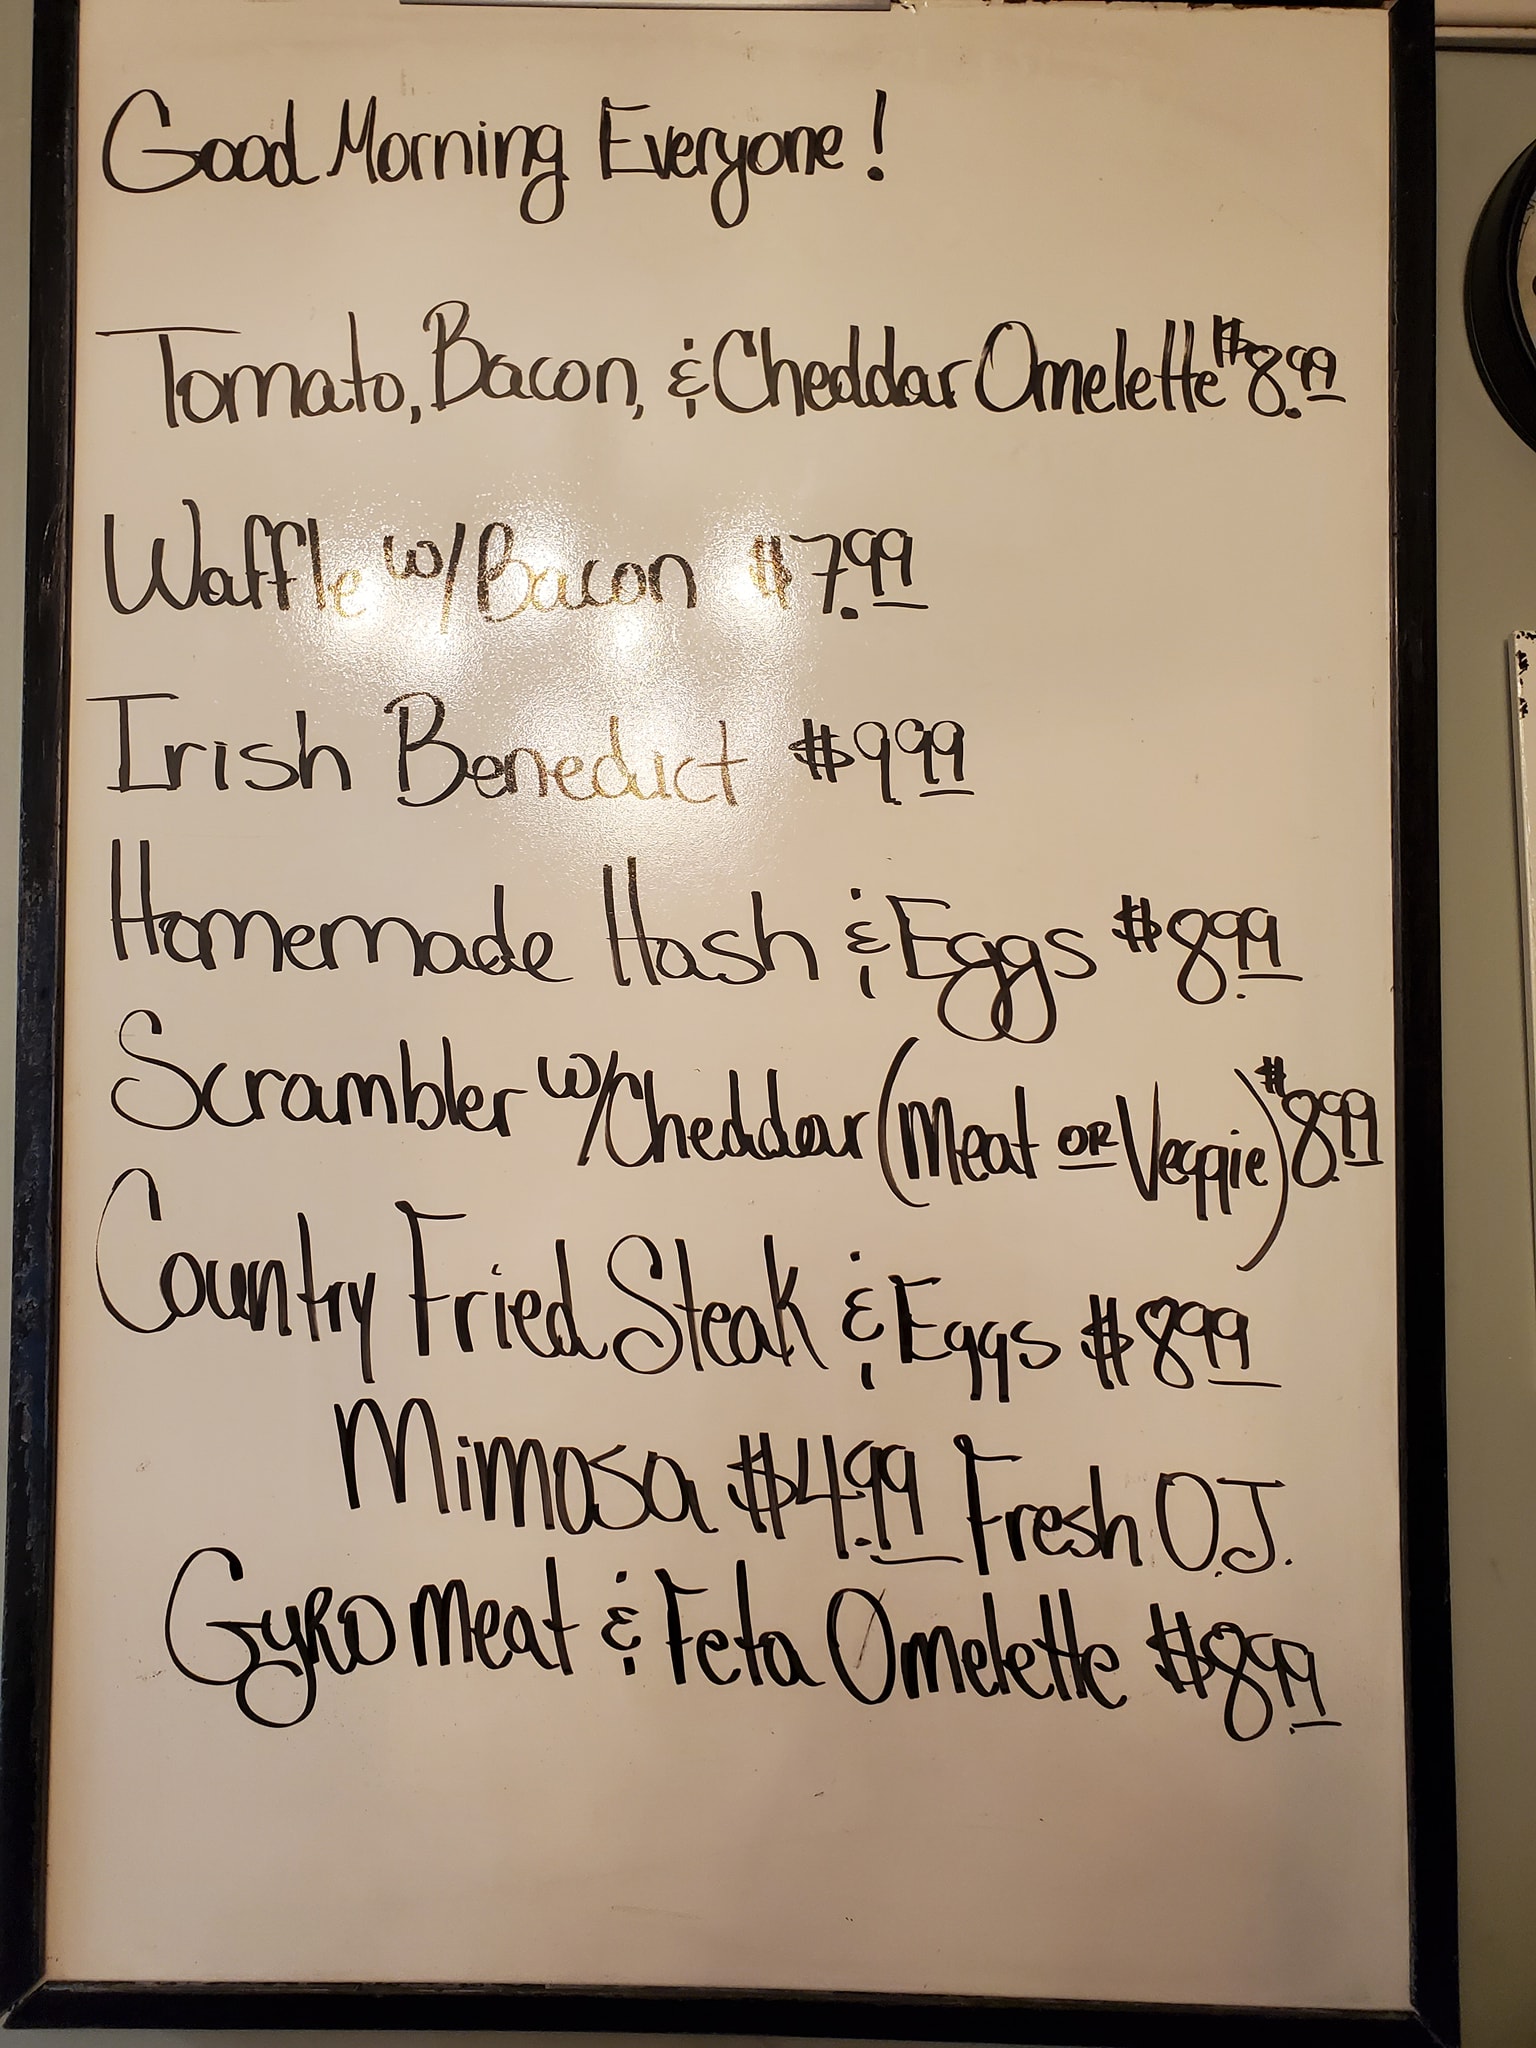 Good Morning Everyone!
Tomato, Bacon, & Cheddar Omelette $8.99
Waffle w/Bacon $7.99
Irish Beneduct $9.99
Homemade Hash & Eggs $8.99
Scrambler w/Cheddar (Meat OR Veggie) $8.99
Country Fried Steak & Eggs $8.99
Mimosa $4.99 Fresh O.J.
Gyro Meat & Feta Omelette $8.99